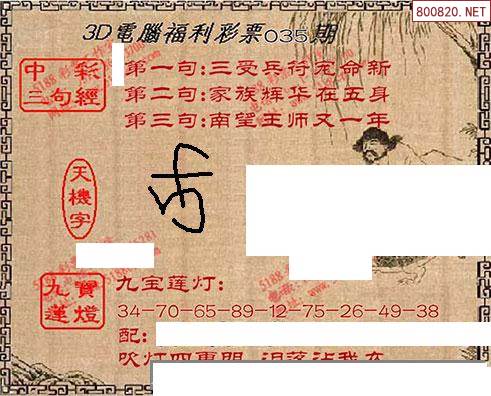 800820.NET
3D電腦福利彩票035期
中彩
三句經
第一句:三受兵符宠命新
第二句:家族辉华在五身
第三句:南望王师又一年
天機字
九寶
蓮燈
九宝莲灯:
34-70-65-89-12-75-26-49-38
配:
吹灯四重門